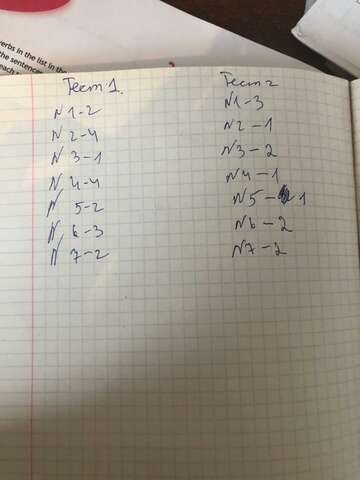 erbs in the list in the
the sentences
each
Тест 1.
N 1-2
N 2-4
N 3-1
N 4-4
N 5-2
N 6-3
N 7-2
Тест 2
N1-3
N2-1
N3-2
N4-1
N5-1
N6-2
N7-2